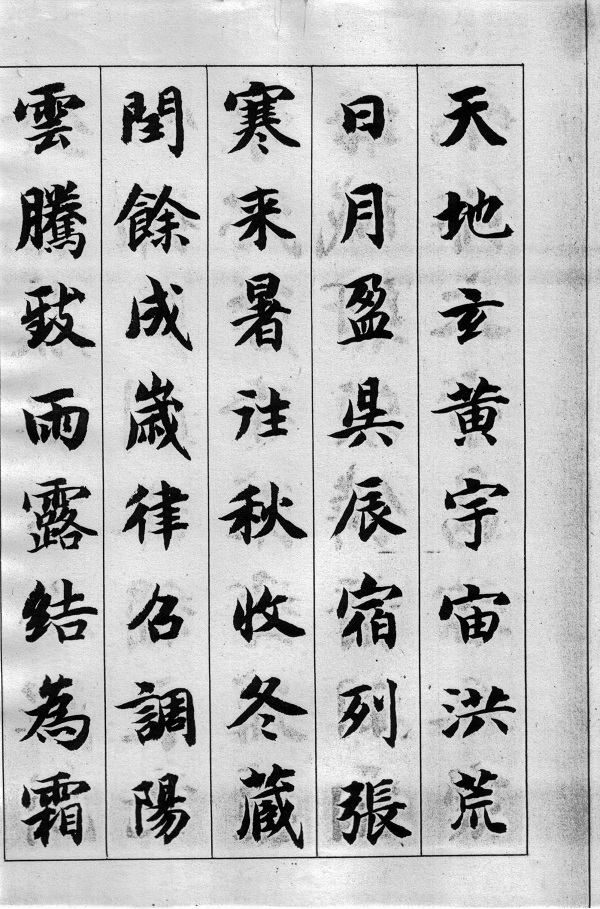 天地玄黄宇宙洪荒
日月盈昃辰宿列張
寒来暑往秋收冬蔵
閏餘成歳律召調陽
雲騰致雨露結為霜